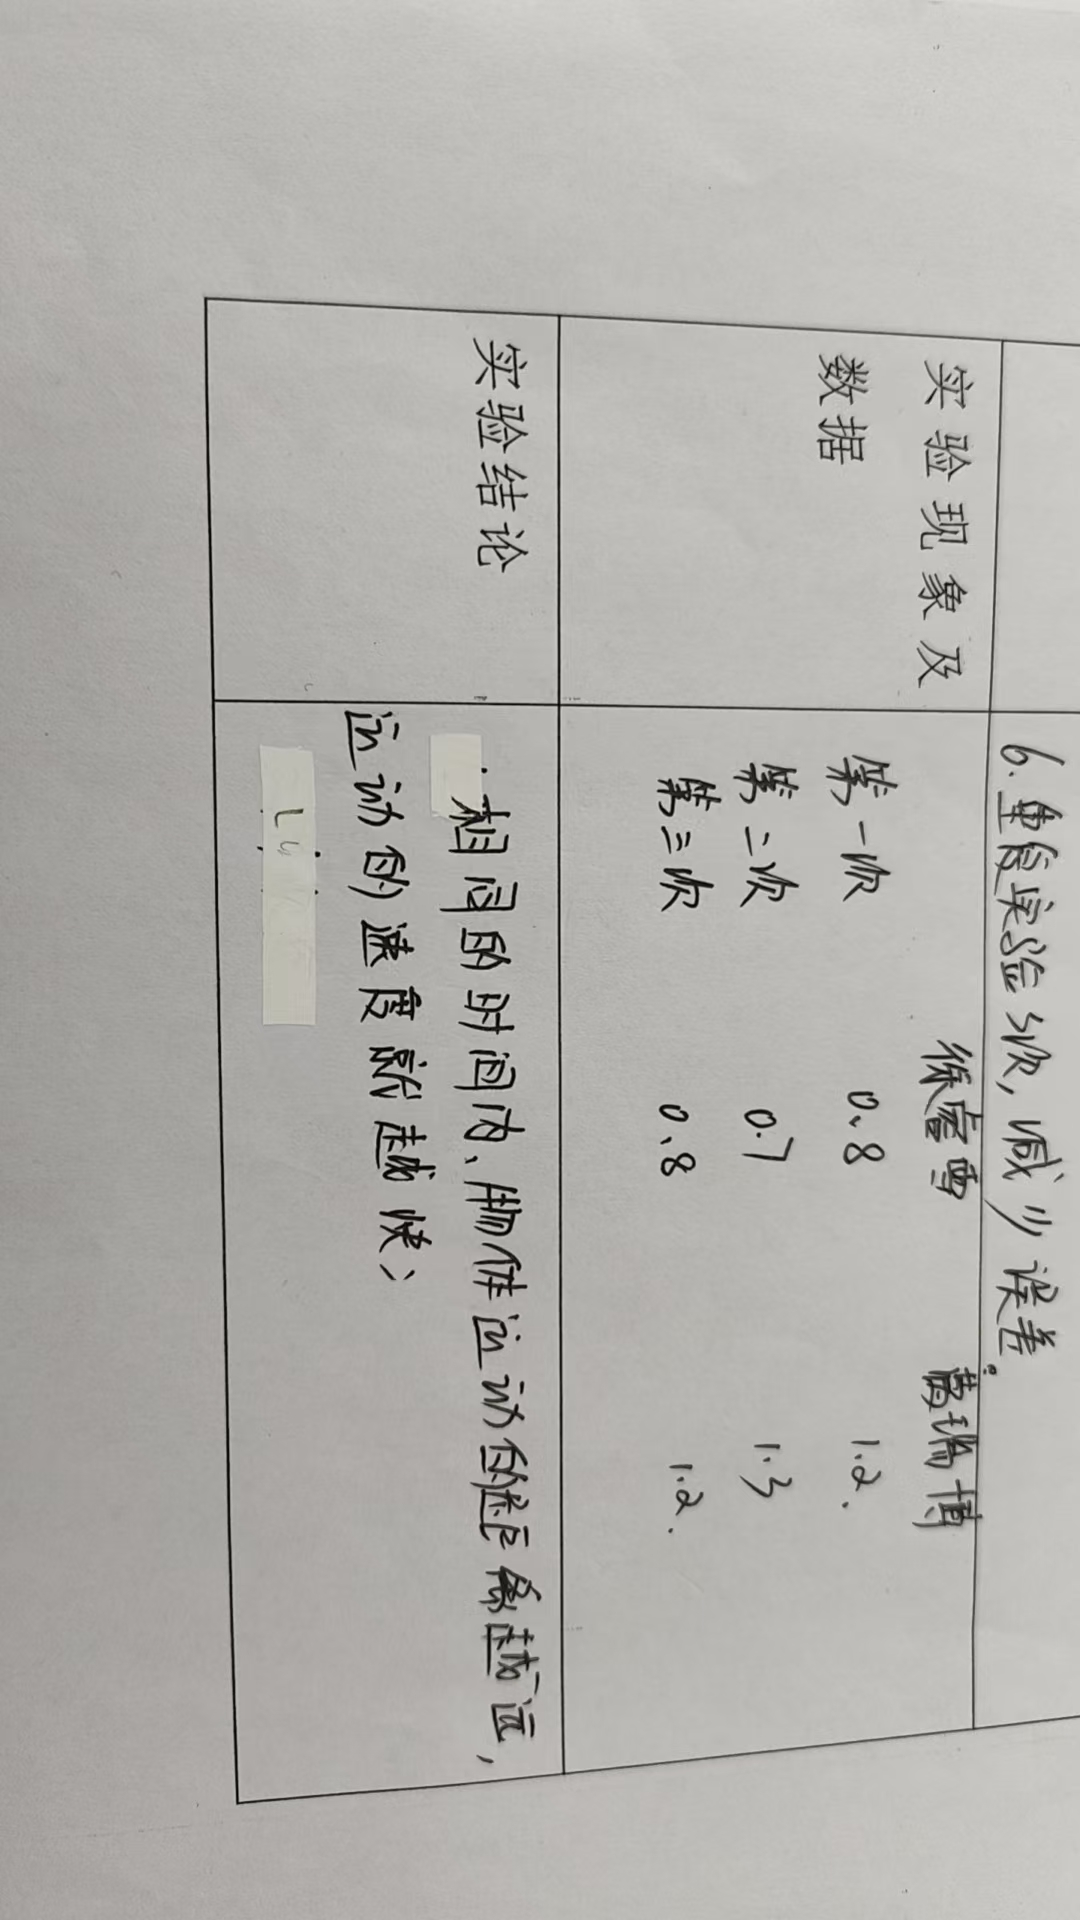 6.重复实验3次,减少误差。
实验现象及
数据
徐富雪 葛瑞博
第一次 0.8 1.2.
第二次 0.7 1.3
第三次 0.8 1.2.
实验结论
相同的时间内、物体运动的距离越远,
运动的速度就越快、